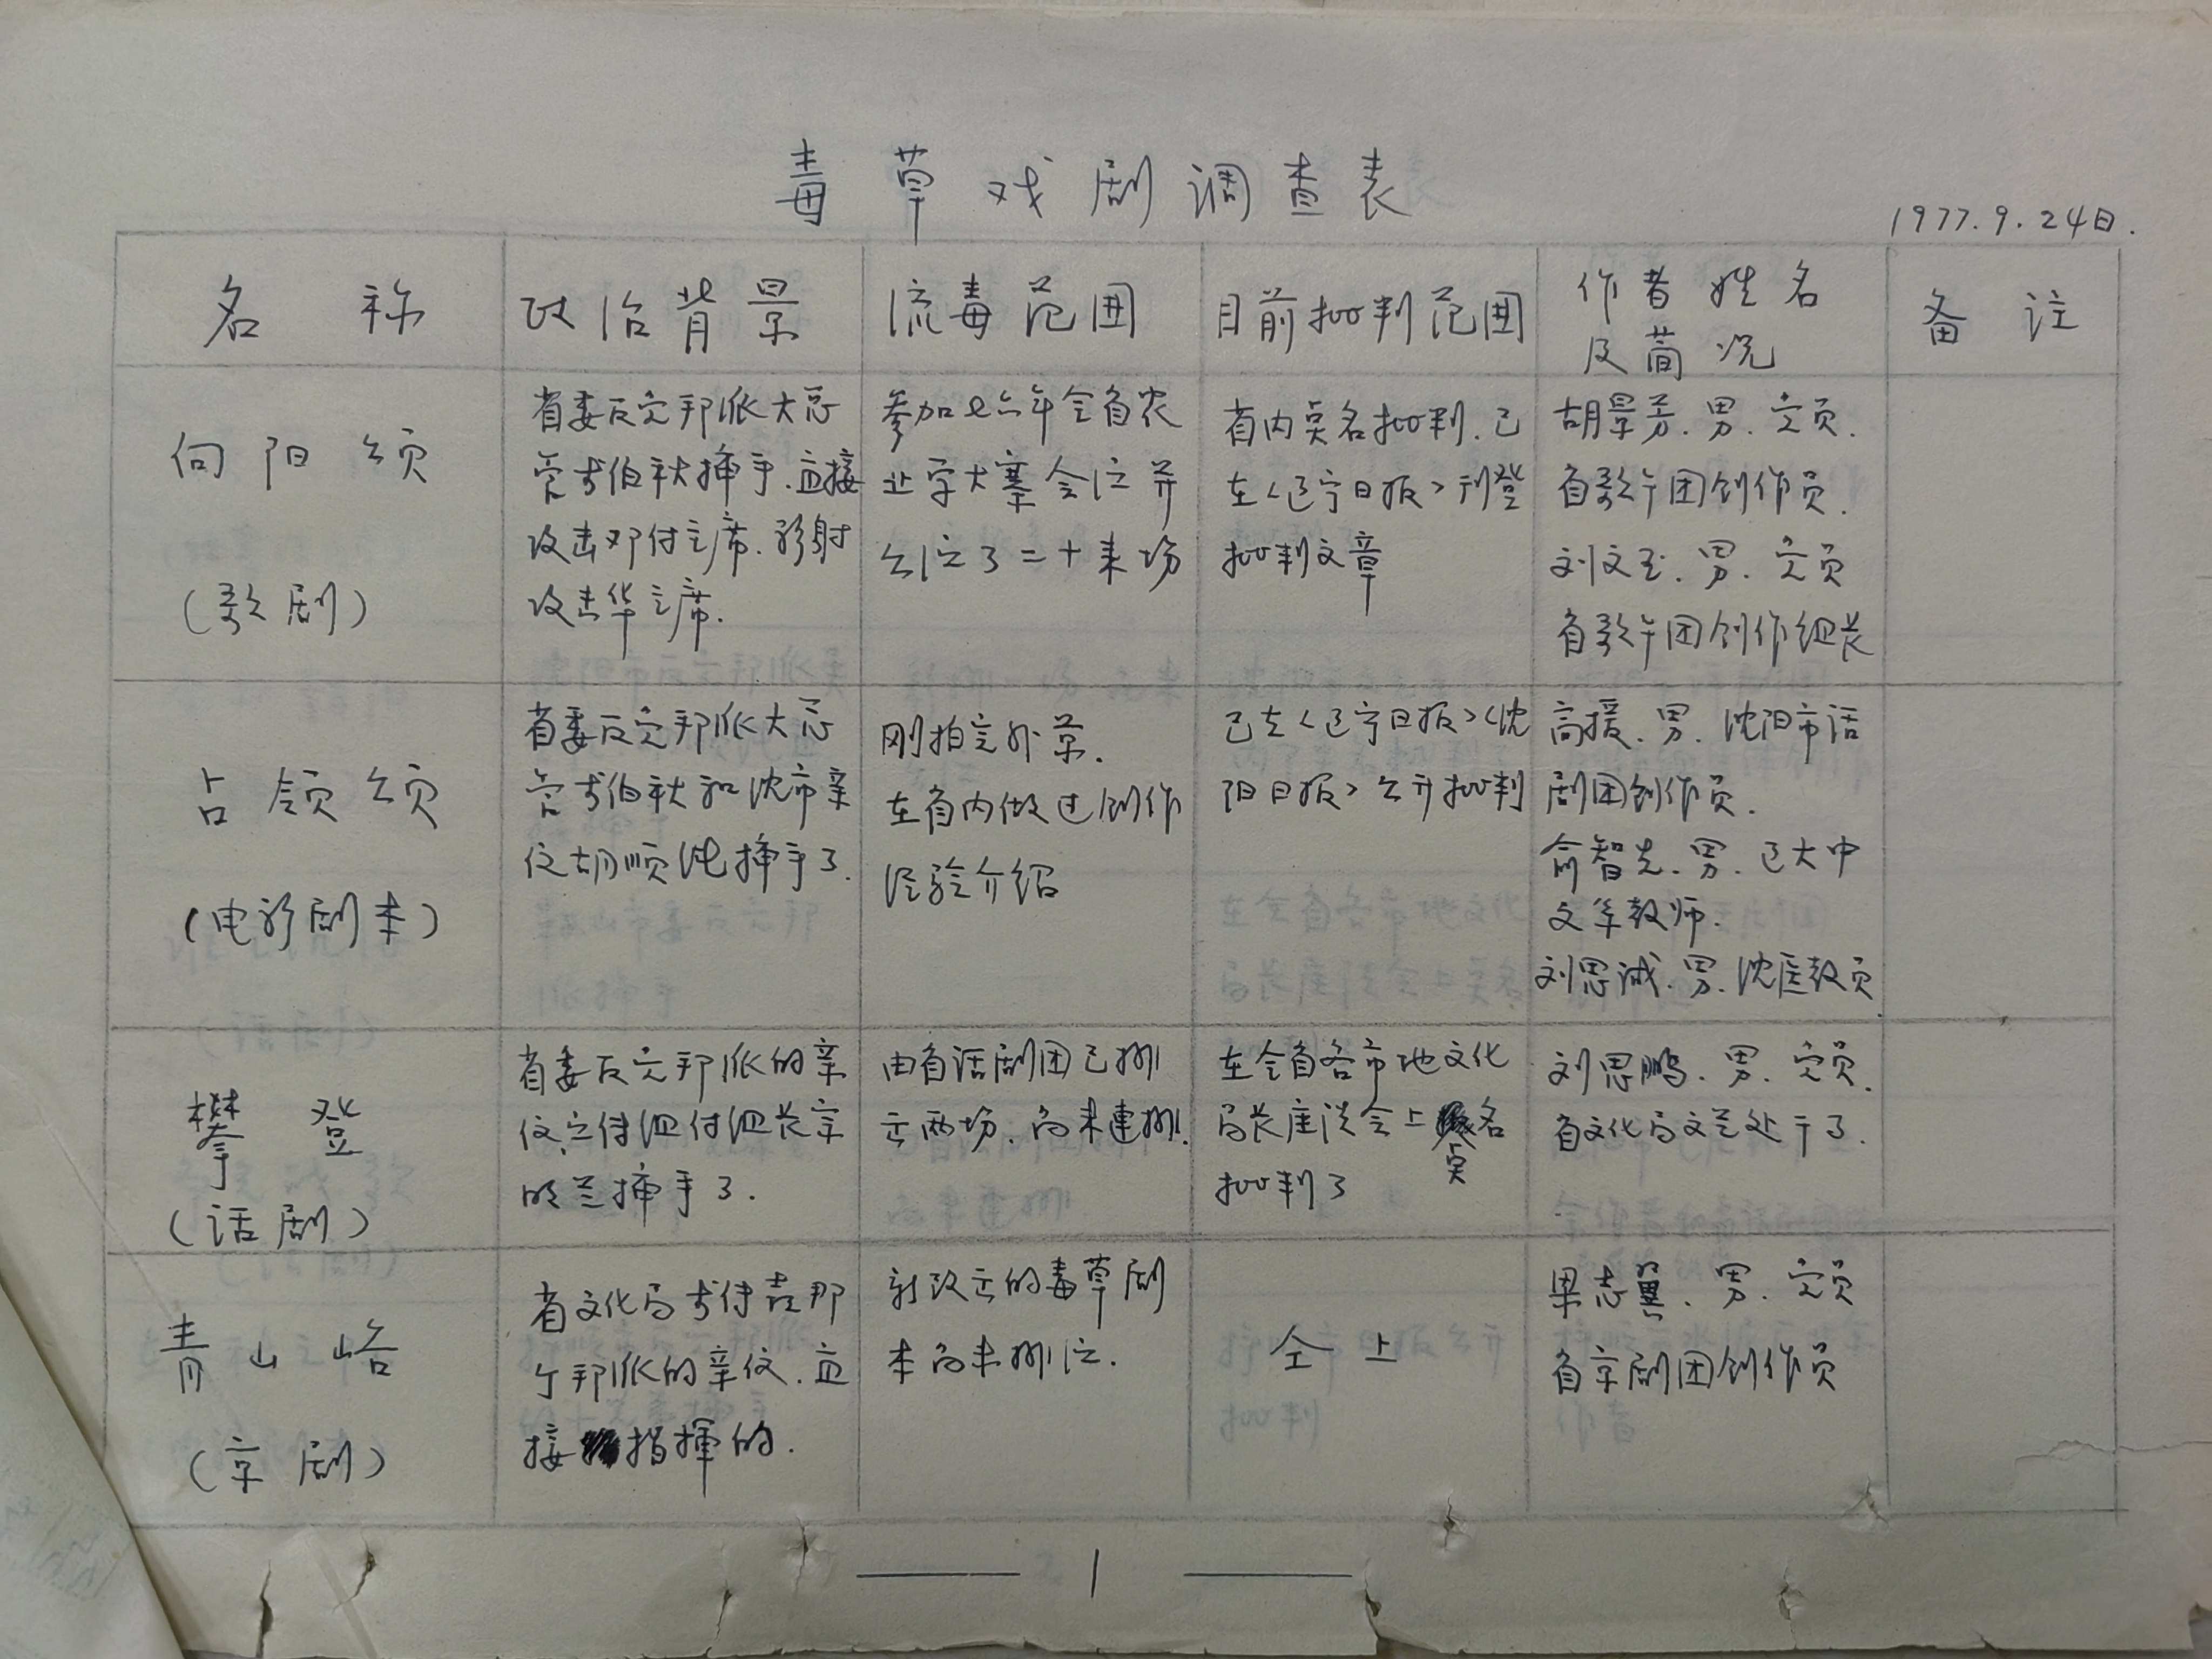 毒草戏剧调查表
1977.9.24日.
名称
政治背景
流毒范围
目前批判范围
作者姓名
及简况
备注
向阳颂
(歌剧)
省委反党邦派大总
管李伯秋插手.直接
攻击邓付主席.影射
攻击华主席.
参加七六年全省农
业学大寨会演并
公演了二十来场
省内点名批判.已
在<辽宁日报>刊登
批判文章
胡景芳.男.党员.
省歌午团创作员.
刘文玉.男.党员
省歌午团创作组长
占领颂
(电影剧本)
省委反党邦派大总
管李伯秋和沈市亲
信胡顺 插手了.
刚拍完外景.
在省内做过创作
经验介绍
已在<辽宁日报><沈
阳日报>公开批判
高援.男.沈阳市话
剧团创作员.
俞智先.男.辽大中
文系教师.
刘思诚.男.沈医教员
攀登
(话剧)
省委反党邦派的亲
信宣传组付组长宗
明兰插手了.
由省话剧团已排
完两场.尚未连排.
在全省各市地文化
局长座谈会上点名
批判了
刘思鹏.男.党员.
省文化局文艺处干了.
青山峪
(京剧)
省文化局李传吉那
个邦派的亲信.直
接指挥的.
新改完的毒草剧
本尚未排演.
仝上
梁志翼.男.党员
省京剧团创作员
—— 1 ——